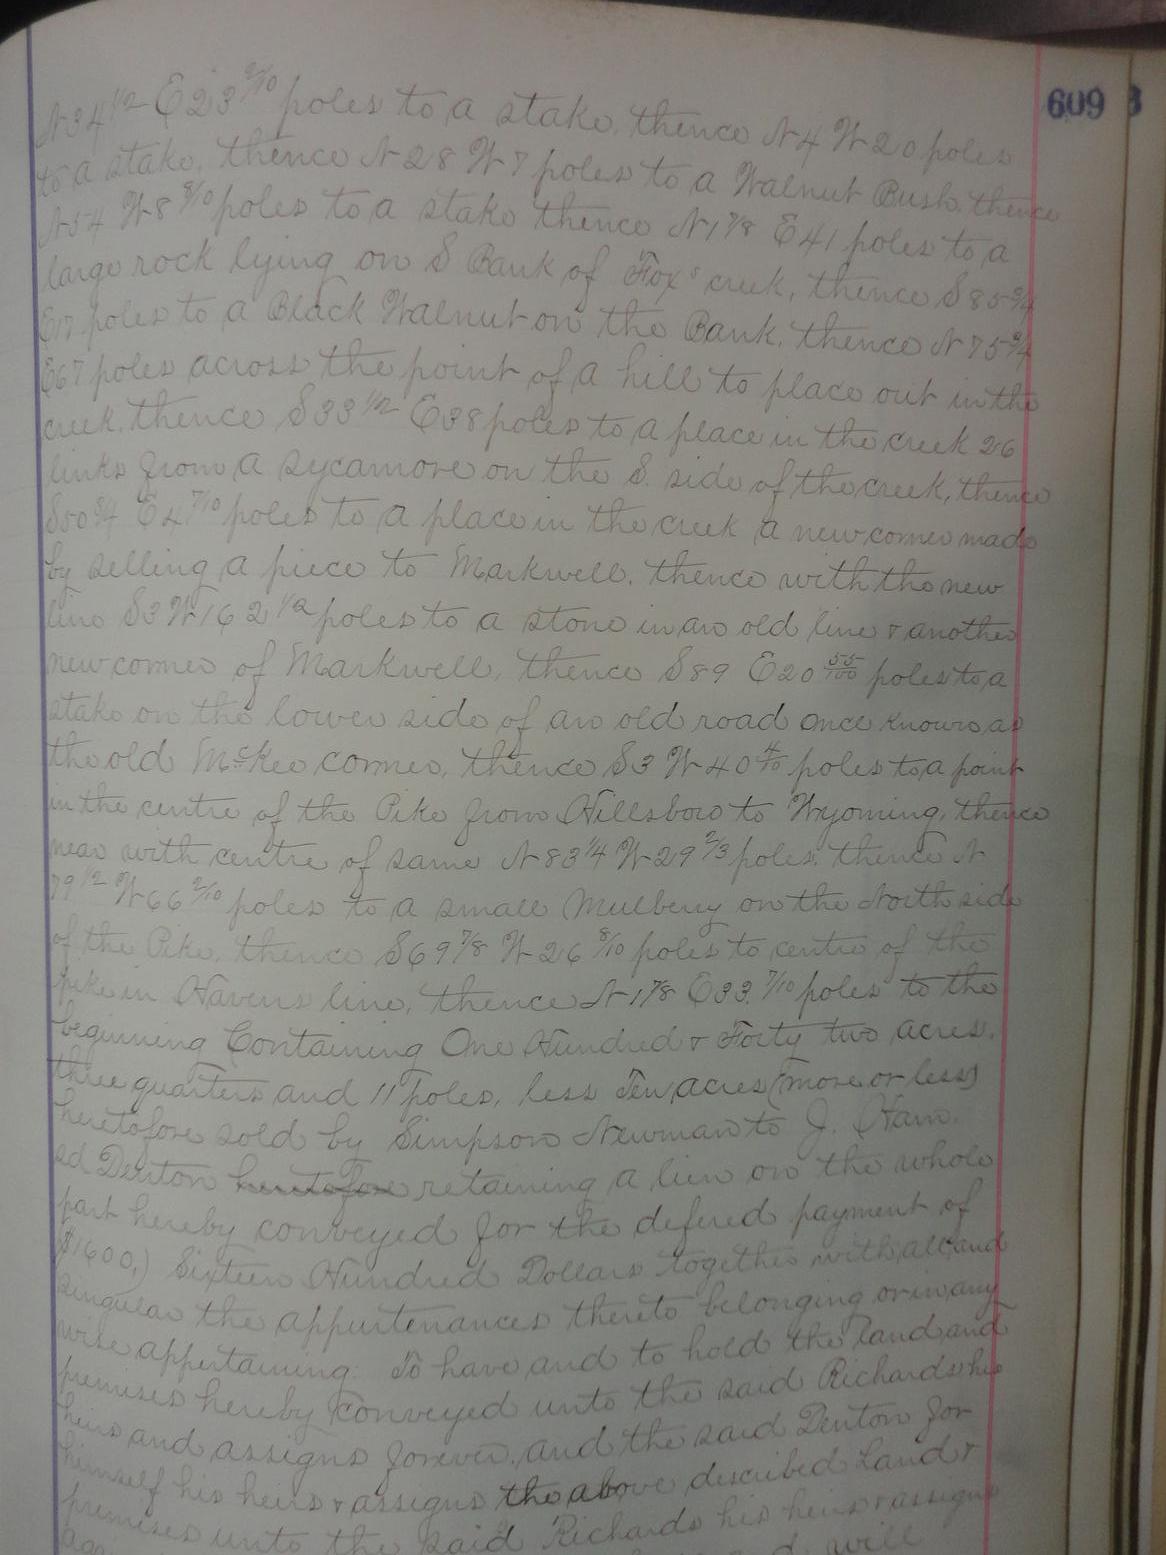 609
N34 1/2 E23 9/10 poles to a stake, thence N4 W20 poles
to a stake, thence N28 W7 poles to a Walnut Bush, thence
N54 W8 8/10 poles to a stake thence N17/8 E41 poles to a
large rock lying on S Bank of Fox's creek, thence S85 3/4
E17 poles to a Black Walnut on the Bank, thence N75 3/4
E67 poles across the point of a hill to place out in the
creek, thence S33 1/2 E38 poles to a place in the creek 26
links from a sycamore on the S. side of the creek, thence
S50 3/4 E4 7/10 poles to a place in the creek a new corner made
by selling a piece to Markwell, thence with the new
line S3 W162 1/2 poles to a stone in an old line & another
new corner of Markwell, thence S89 E20 55/100 poles to a
stake on the lower side of an old road once known as
the old McKee corner, thence S3 W40 4/10 poles to a point
in the centre of the Pike from Hillsboro to Wyoming, thence
near with centre of same N83 1/4 W29 2/3 poles, thence N
79 1/2 W66 2/10 poles to a small Mulberry on the North side
of the Pike, thence S69 7/8 W26 8/10 poles to centre of the
pike in Havens line, thence N17/8 E33 7/10 poles to the
beginning Containing One Hundred & Forty two acres,
three quarters and 11 poles, less Ten acres (more or less)
heretofore sold by Simpson Newman to J. Ham.
sd Denton heretofore retaining a lien on the whole
part hereby conveyed for the defered payment of
$1600,) Sixteen Hundred Dollars together with all and
singular the appurtenances thereto belonging or in any
wise appertaining. To have and to hold the land and
premises hereby conveyed unto the said Richards his
heirs and assigns forever, and the said Denton for
himself his heirs & assigns the above described Land &
premises unto the said Richards his heirs & assigns
will